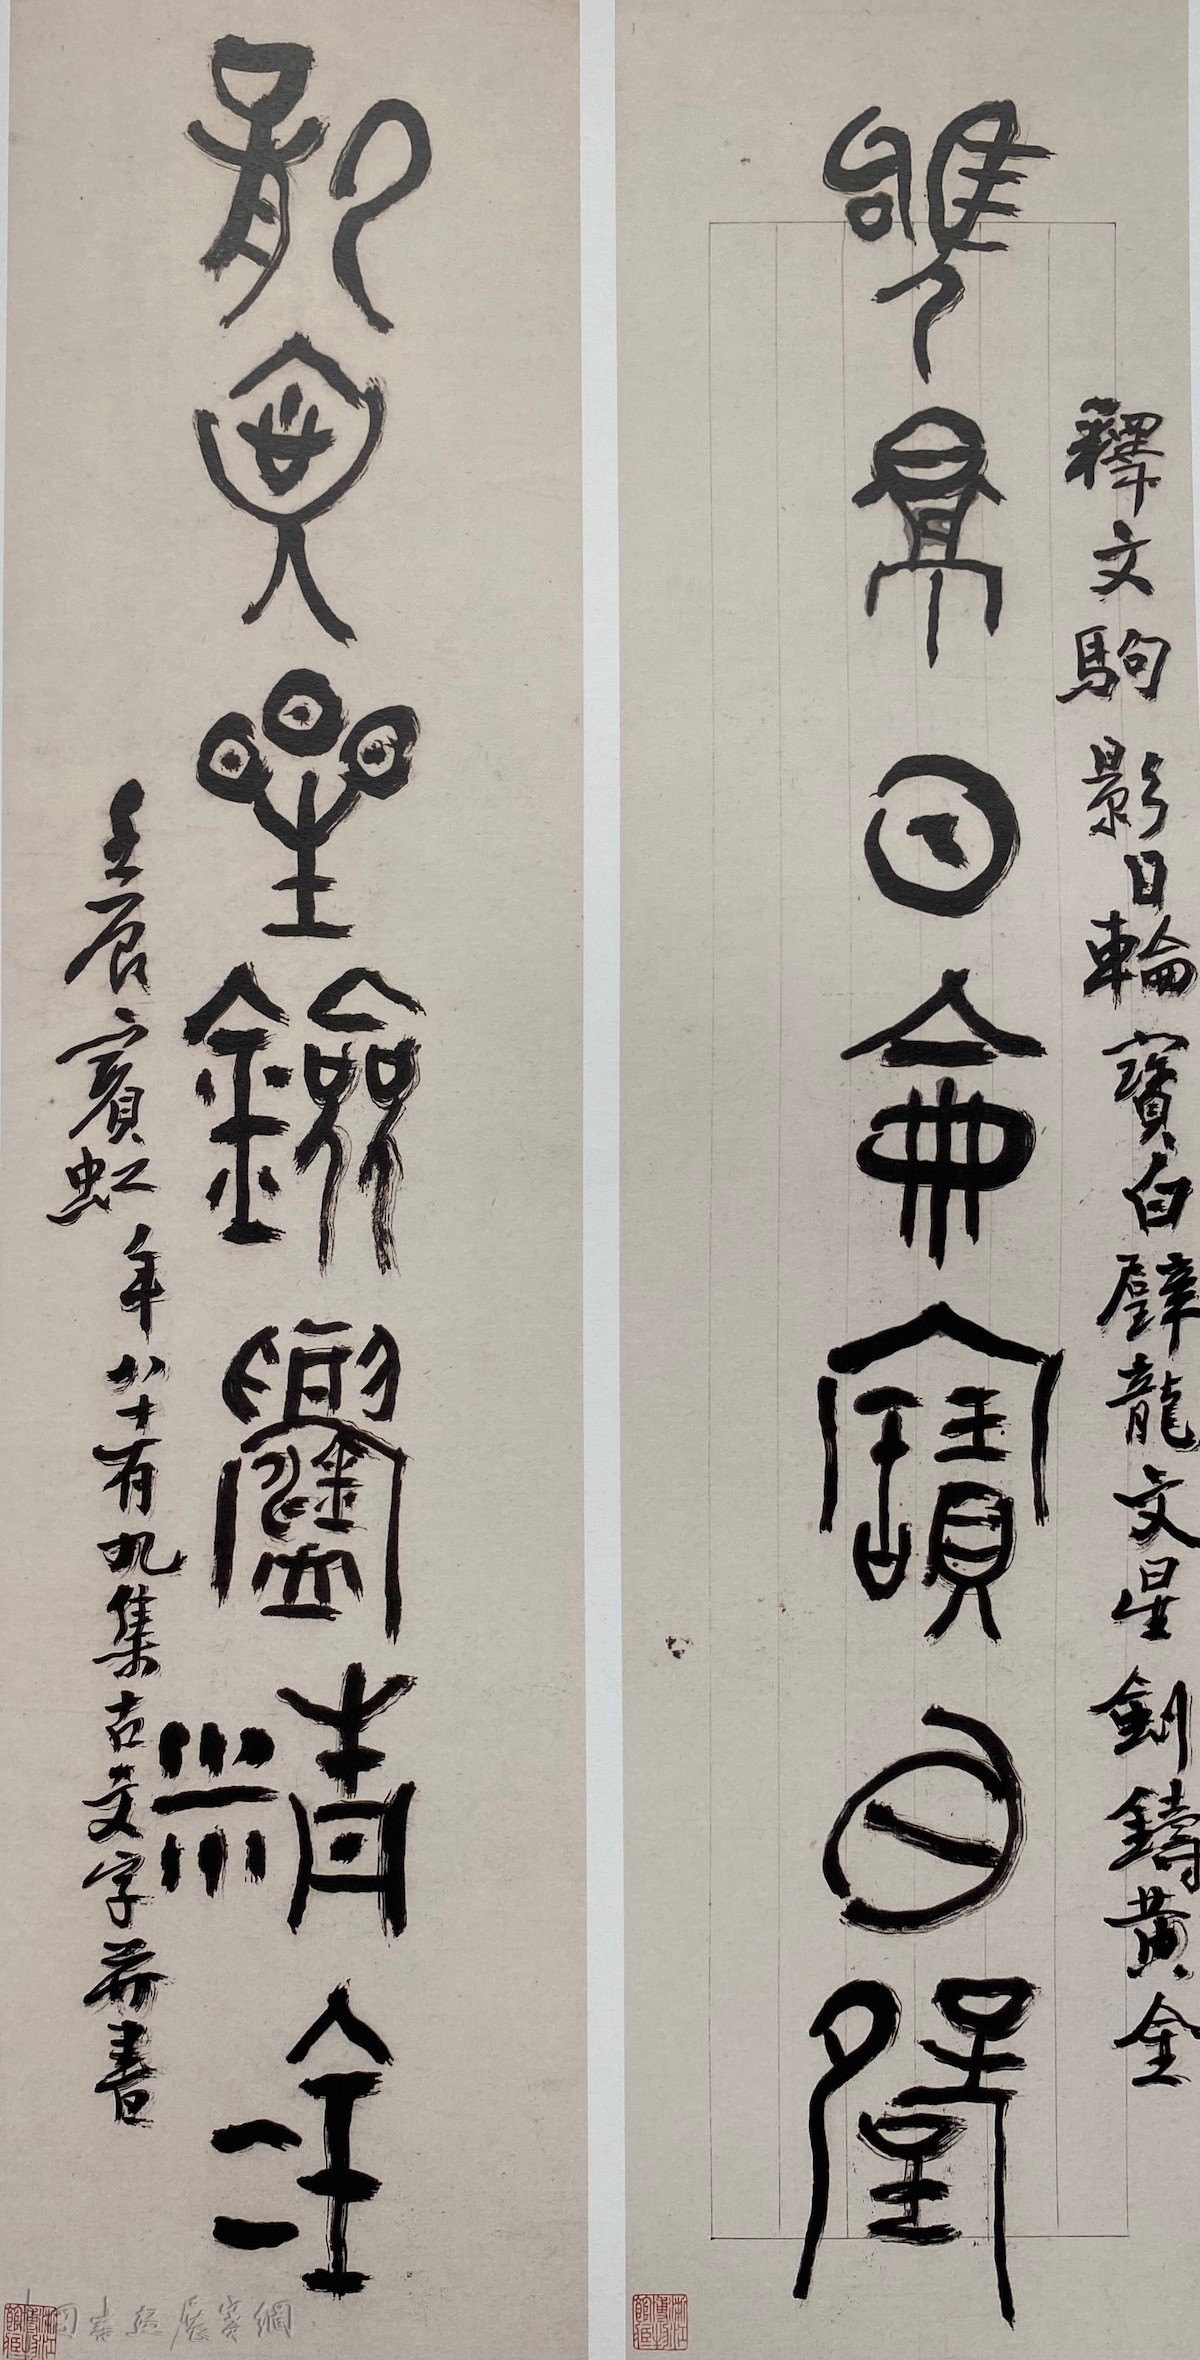 釋文駒影日輪寶白璧龍文星劍鑄黃金
駒景日侖寶白璧
龍文星劍鑄黃金
壬辰賓虹年八十有九集古文字并書